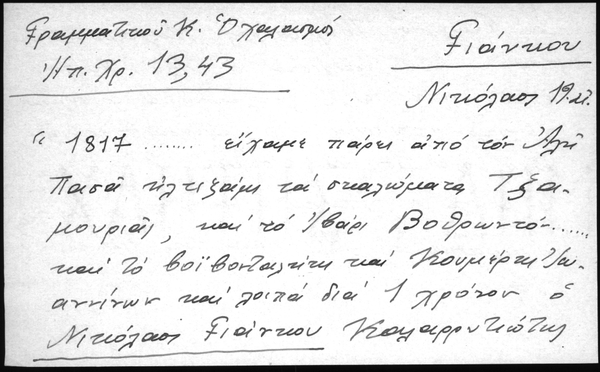 Γραμματικοῦ Κ. Ὁ χαλασμός
Ἠπ. Χρ. 13, 43
Γιάνκου
Νικόλαος 19
"1817 ........ εἴχαμε πάρει ἀπό τόν Ἀλῆ
Πασᾶ ἠλτιζάμι τά σκαλώματα Τζα-
μουριᾶς, καί τό ἰβάρι Βοθρωντόν......
καί τό βοϊβονταλίκι καί Κουμέρκι Ἰω-
αννίνων καί λοιπά διά 1 χρόνον ὁ
Νικόλαος Γιάνκου Καλαρρυτιώτης